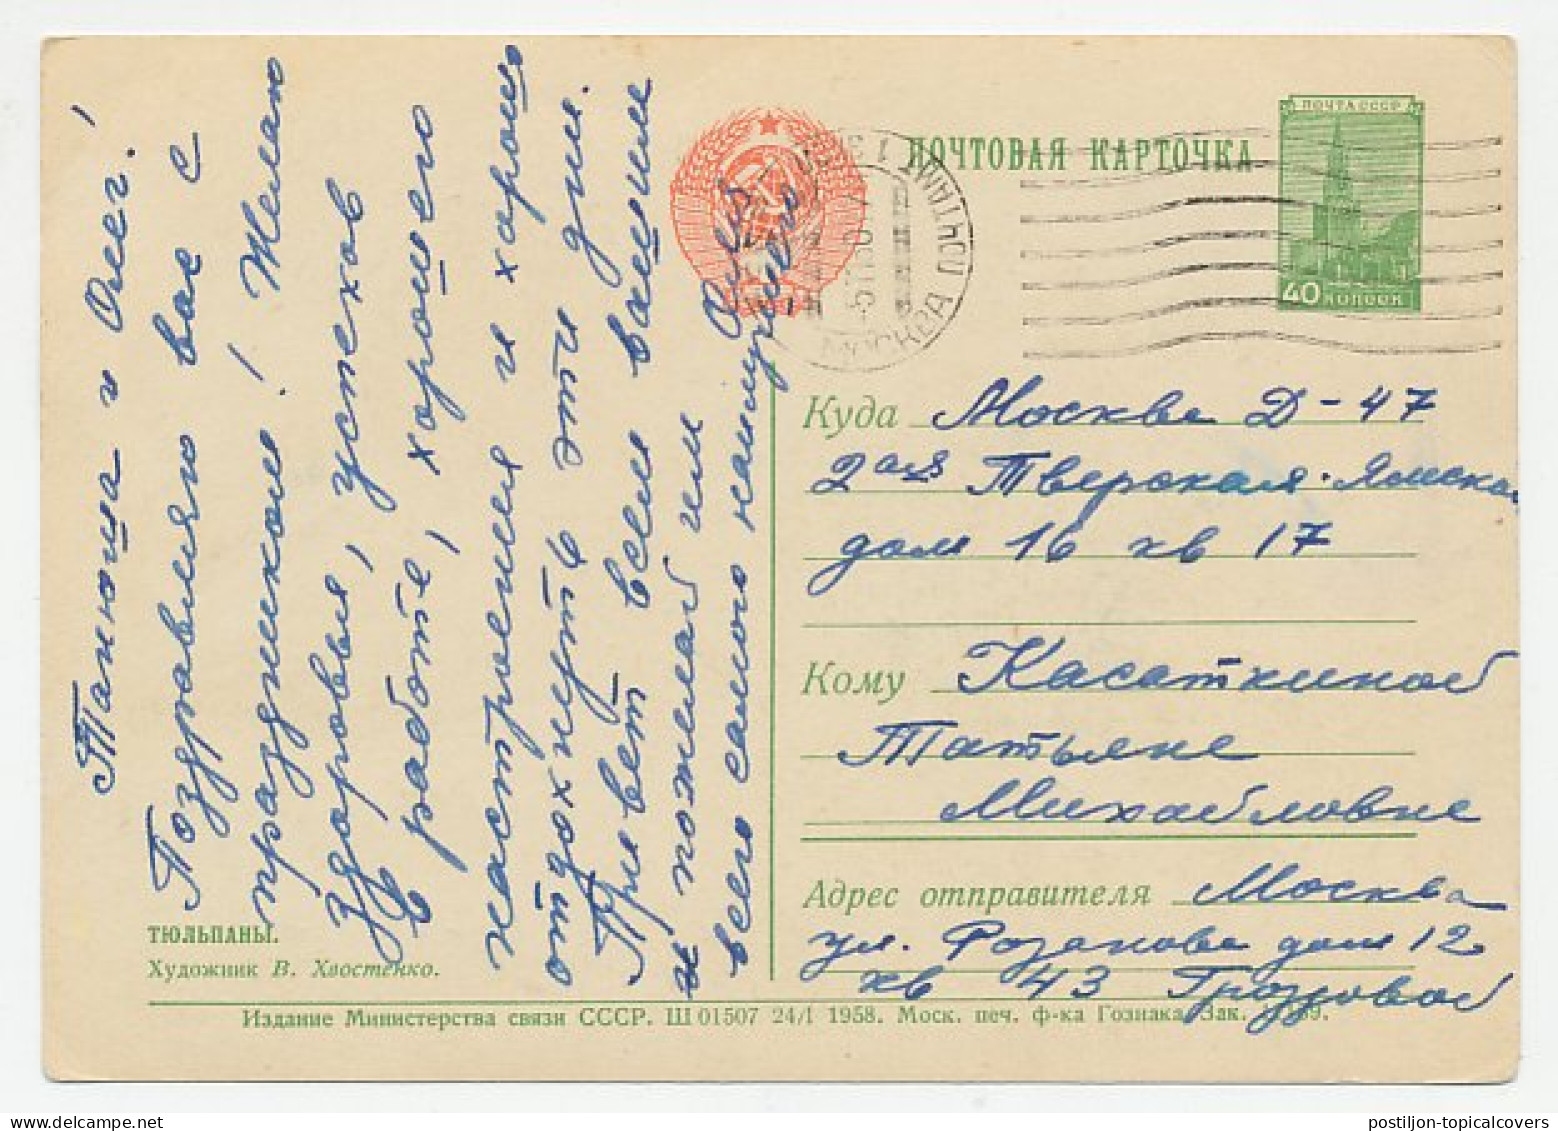 Танюша и Олег!
Поздравляю вас с
праздником! Желаю
здоровья, успехов
в работе, хорошего
настроения и хорошо
отдохнуть в эти дни.
Привет всем вашим
и пожелай им
всего самого наилучшего
ПОЧТОВАЯ КАРТОЧКА
ПОЧТА СССР
40 КОПЕЕК
МОСКВА ПОЧТАМТ
Куда Москва Д-47
2ая Тверская-Ямская
дом 16 кв 17
Кому Касаткиной
Татьяне
Михайловне
Адрес отправителя Москва
ул. Розанова дом 12
кв 43 Грозовой
ТЮЛЬПАНЫ.
Художник В. Хвостенко.
Издание Министерства связи СССР. Ш 01507 24/I 1958. Моск. печ. ф-ка Гознака. Зак.
postiljon-topicalcovers